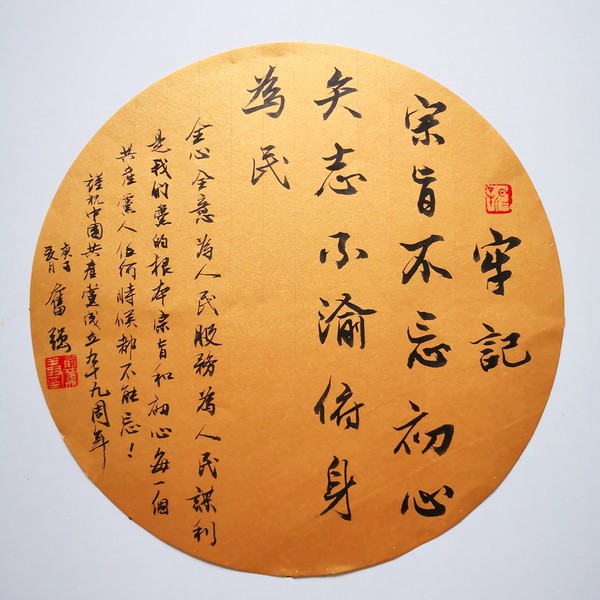 牢記
宗旨不忘初心
矢志不渝俯身
為民
全心全意為人民服務為人民謀利
是我们黨的根本宗旨和初心每一個
共産黨人任何時候都不能忘！
謹祝中國共産黨成立九十九周年
庚子
夏月
奮强